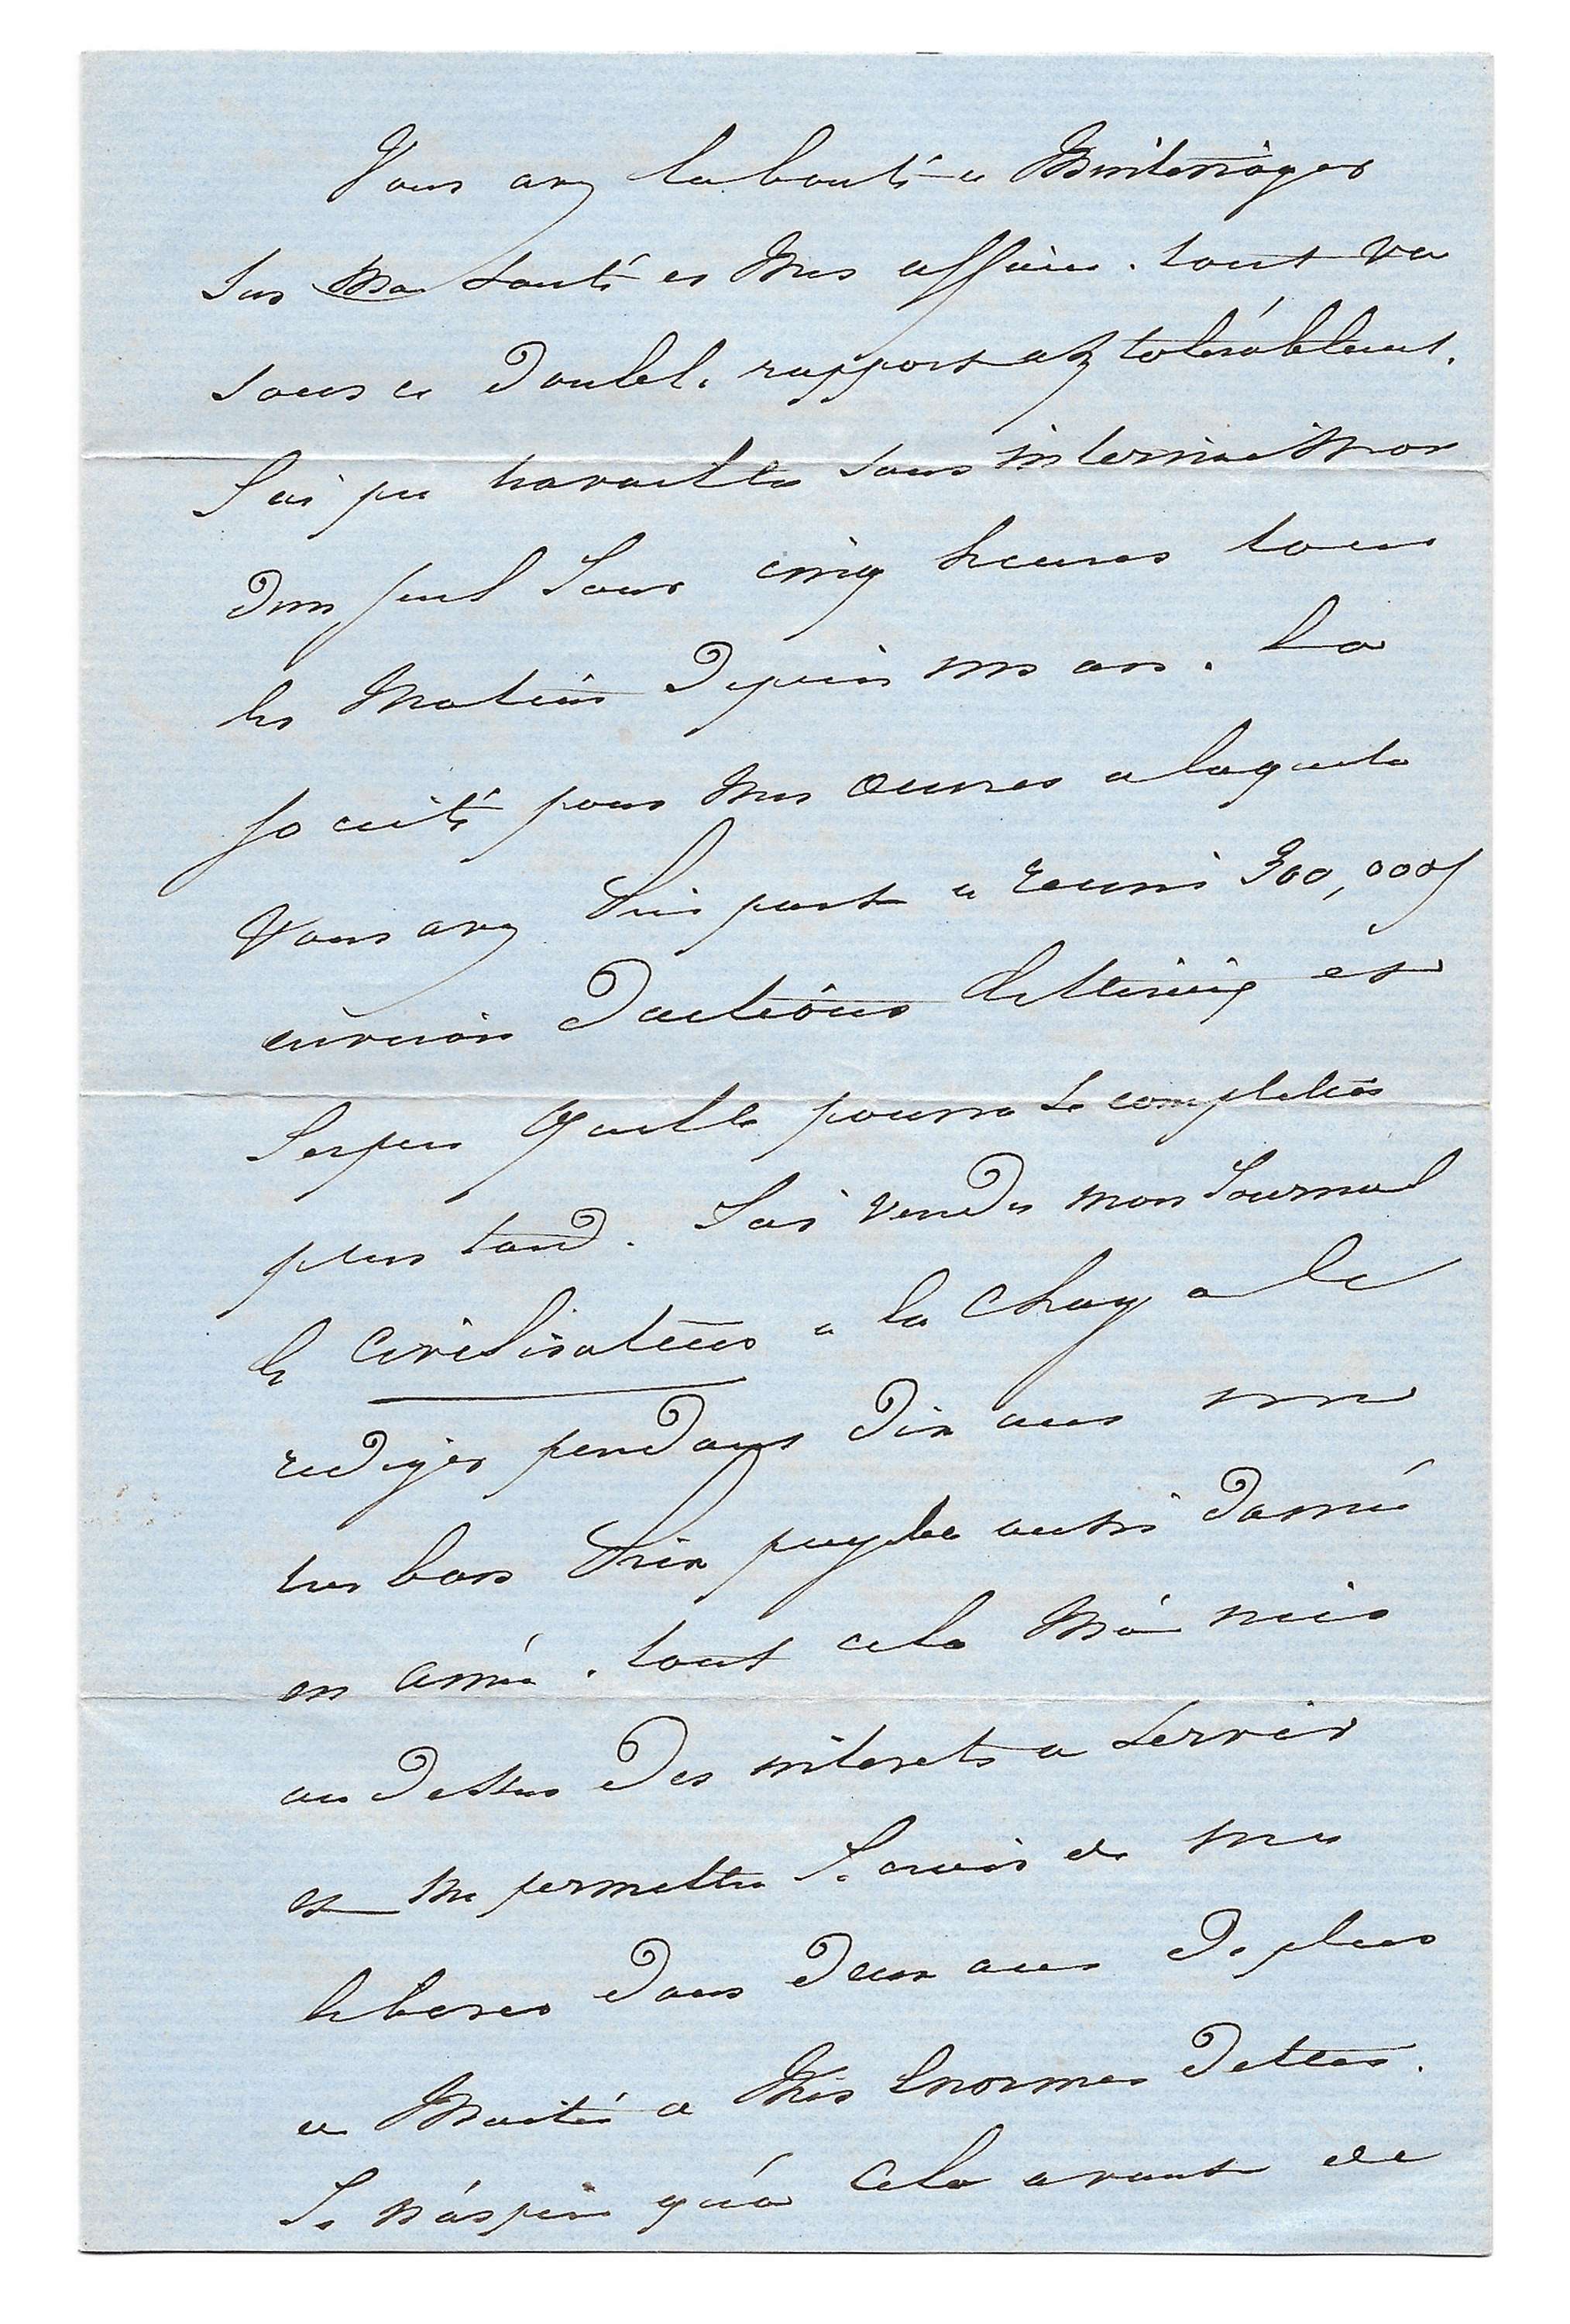 Vous avez la bonté de m'interroger
sur ma santé et mes affaires. tout va
sous ce double rapport assez tolérablement.
J'ai pu travailler sans interruption
d'un seul jour cinq heures tous
les matins depuis un an. La
société pour mes œuvres a laquelle
vous avez pris part a reuni 300,000 f
environ d'actions et
J'espere qu'elle pourra se completer
plus tard. J'ai vendu mon Journal
le Civilisateur a la charge de le
rediger pendant dix ans un
tres bon prix payable aussi d'année
en année. tout cela m'a mis
au dessus des interets a servir
et me permettra Je crois de me
liberer dans deux ans de plus
de moitié de mes Enormes Dettes.
Je n'aspire qu'a cela avant de